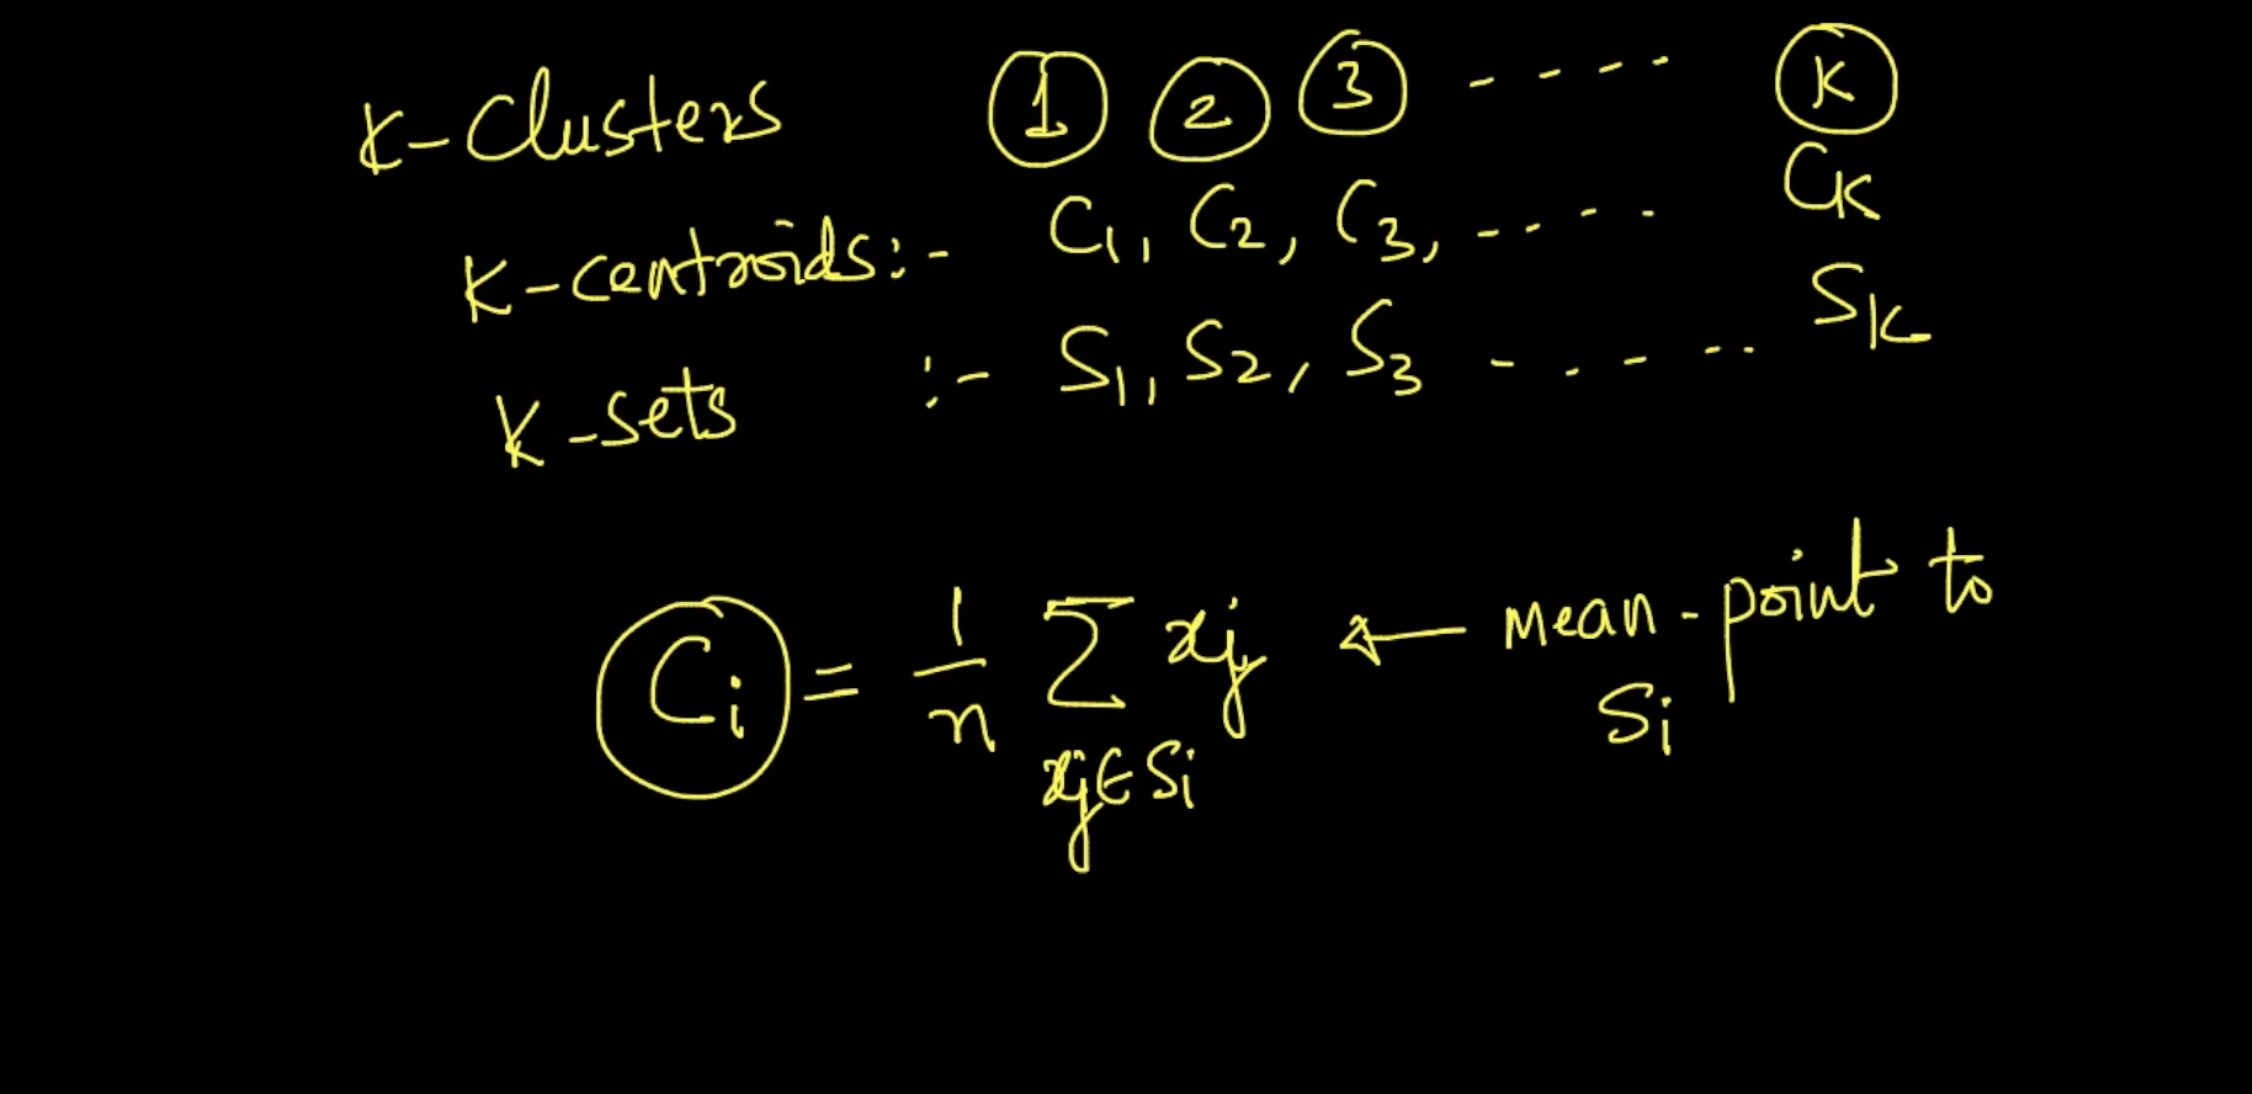 K-Clusters 1 2 3 ---- K
K-centroids:- C1, C2, C3, ----- CK
K-sets :- S1, S2, S3 ----- SK
Ci = 1/n Σ xj ← mean-point to Si
xj∈Si